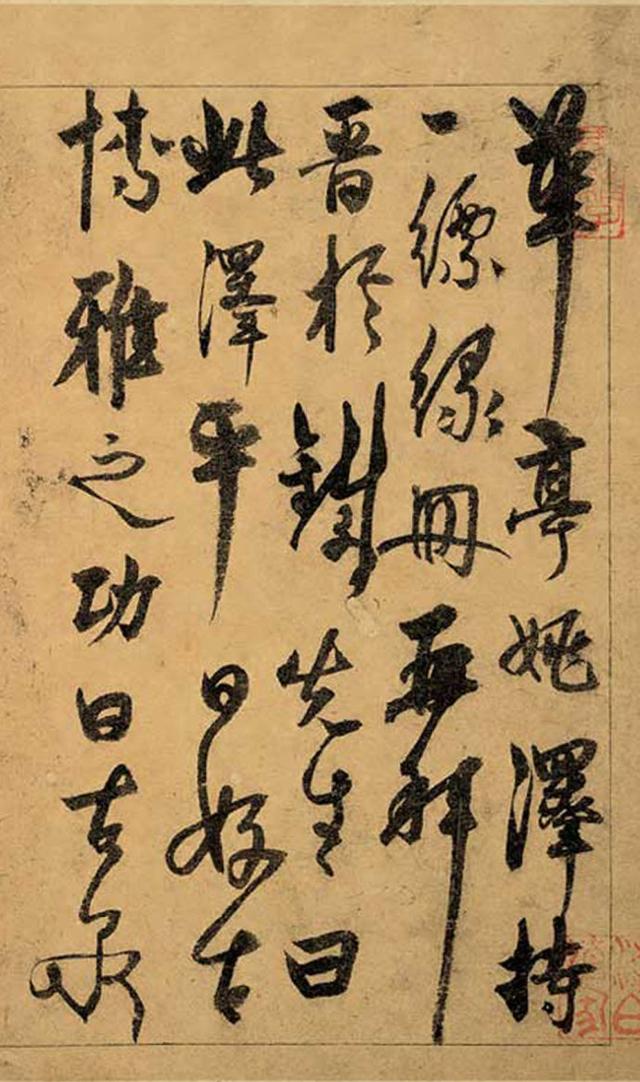 華亭姚澤持
一縹緣冊再拜
晉於鐵先生曰
此澤平日好古
博雅之功曰古泉